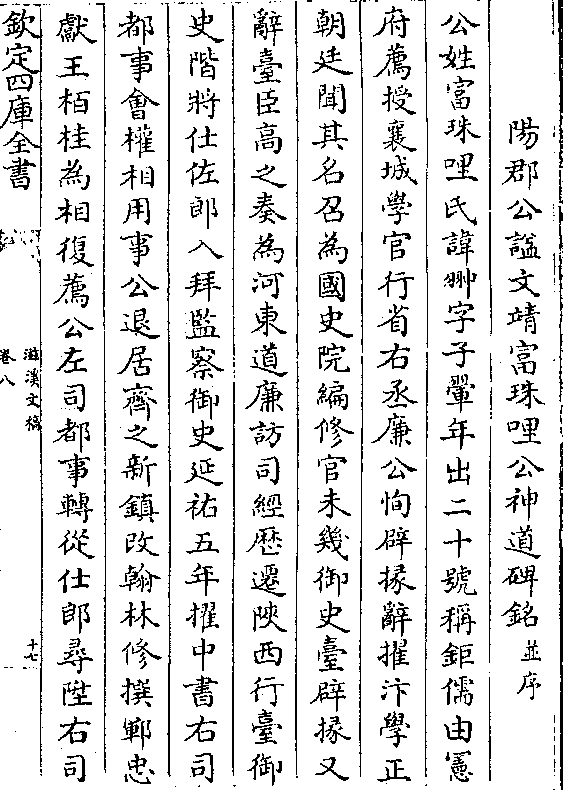 陽郡公諡文靖富珠哩公神道碑銘並序
公姓富珠哩氏諱翀字子翬年出二十號稱鉅儒由憲
府薦授襄城學官行省右丞廉公恂辟掾辭擢汴學正
朝廷聞其名召為國史院編修官未幾御史臺辟掾又
辭臺臣高之奏為河東道廉訪司經歷遷陝西行臺御
史階將仕佐郎入拜監察御史延祐五年擢中書右司
都事會權相用事公退居齊之新鎮改翰林修撰鄆忠
獻王栢桂為相復薦公左司都事轉從仕郎尋陞右司
欽定四庫全書
滋溪文稿
卷八
十七